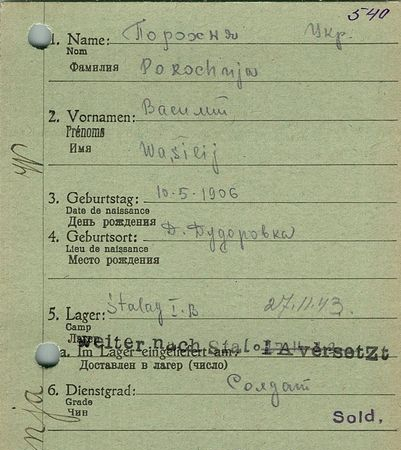 540
1. Name: Порохня Укр.
Nom
Фамилия Porochnja
2. Vornamen: Василий
Prénoms
Имя Wasilij
3. Geburtstag: 10.5-1906
Date de naissance
День рождения
4. Geburtsort: Д. Дудоровка
Lieu de naissance
Место рождения
5. Lager: Stalag I.B 27.11.43.
Camp
Лагерь
weiter nach Stalag I A versetzt
a. Im Lager eingeliefert am:
Доставлен в лагерь (число)
6. Dienstgrad: Солдат
Grade
Чин
Sold.